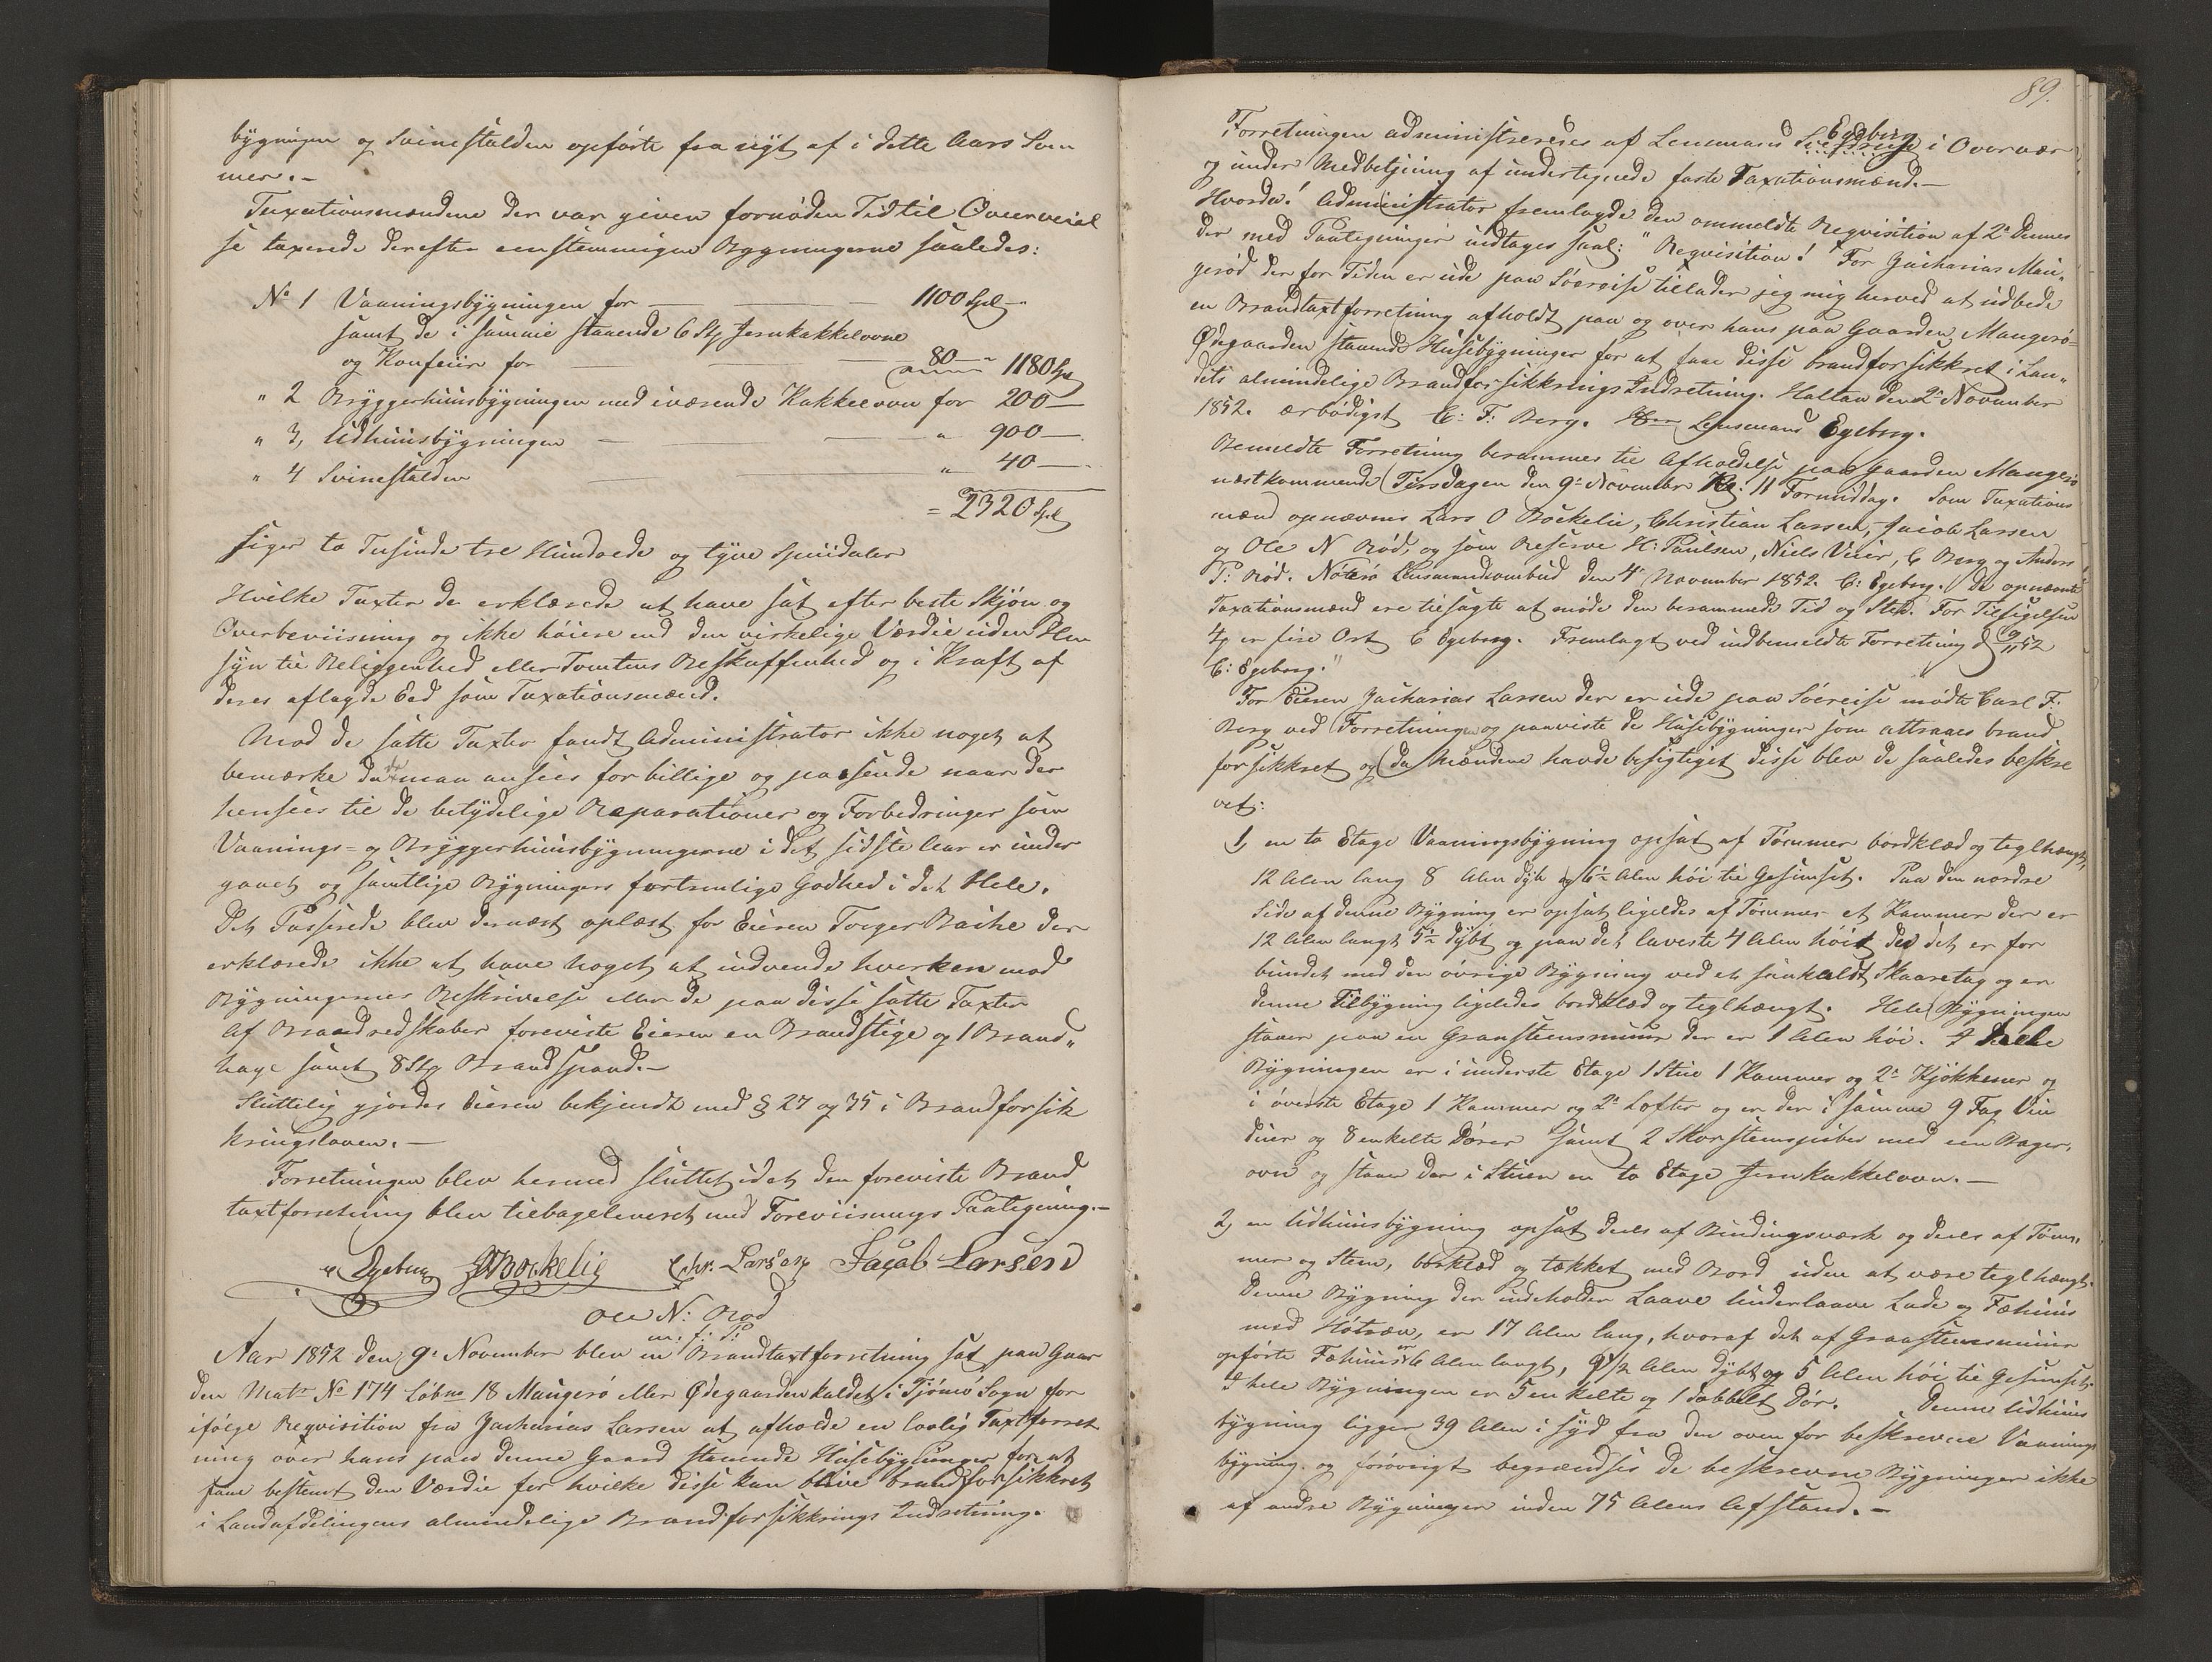 bygningen og Svinestalden opførte fra nyt af i dette Aars Som
mer.-
Taxationsmændene der var given fornøden Tid til Overveiel
se taxerede derefter eenstemmigen Bygningerne saaledes:
No 1 Vaaningsbygningen for — 1100 Spd -
samt de i samme staaende 6 Stk Jernkakkelovne
og Komfuir for — 80 - " 1180 Spd
" 2 Bryggerhuusbygningen med iværende Kakkelovn for 200 —
" 3, Udhuusbygningen — " 900 —
" 4 Svinestalden — " 40 —
= 2320 Spd
siger to Tusinde tre Hundrede og tyve Speciedaler
Hvilke Taxter de erklærede at have sat efter beste Skjøn og
Overbeviisning og ikke høiere end den virkelige Værdie uden Hen
syn til Beliggenhed eller Tomtens Beskaffenhed og i Kraft af
deres aflagde Eed som Taxationsmænd.
Mod de satte Taxter fandt Administrator ikke noget at
bemærke da de maa ansees for billige og passende naar der
hensees til de betydelige Reparationer og Forbedringer som
Vaanings- og Bryggerhuusbygningerne i det sidste Aar er under
gaaet og samtlige Bygningers fortrinlige Godhed i det Hele.
Det Passerede blev dernæst oplæst for Eieren Torger Bache der
erklærede ikke at have noget at indvende hverken mod
Bygningernes Beskrivelse eller de paa disse satte Taxter
Af Brandredskaber foreviste Eieren en Brandstige og 1 Brand„
hage samt 8 Stk Brandspand.-
Sluttelig gjordes Eieren bekjendt med § 27 og 35 i Brandforsik
kringsloven.-
Forretningen blev hermed sluttet idet den foreviste Brand
taxtforretning blev tilbageleveret med Foreviisnings Paategning.-
C Egeberg LOBockelie Chr. Larsen Jacob Larsen
Ole N: Rød
m. f: P:
Aar 1852 den 9de November blev en Brandtaxtforretning sat paa Gaar
den Matr No 174 Løbno 18 Mangerø eller Ødegaarden kaldet i Tjømø Sogn for
ifølge Reqvisition fra Zacharias Larsen at afholde en lovlig Taxtforret
ning over hans paa denne Gaard staaende Huusebygninger for at
faae bestemt den Værdie for hvilke disse kan blive brandforsikkret
i Landafdelingens almindelige Brandforsikkrings Indretning.
89.
Forretningen administreredes af Lensmand Egeberg i Overvær
og under Medbetjening af undertegnede faste Taxationsmænd.-
Hvorda! Administrator fremlagde den ommeldte Reqvisition af 2de dennes
der med Paategninger indtages saal: "Reqvisition! For Zacharias Man„
gerød der for Tiden er ude paa Søereise tillader jeg mig herved at udbede
en Brandtaxtforretning afholdt paa og over hans paa Gaarden Mangerø=
Ødegaarden staaende Huusebygninger for at faae disse brandforsikkret i Lan„
dets almindelige Brandforsikkrings Indretning. Holtan den 2de November
1852. ærbødigst C: F: Berg. Herr Lensmand Egeberg.
Bemeldte Forretning berammes til Afholdelse paa Gaarden Mangerø
næstkommende Tirsdagen den 9de November Kl: 11 Formiddag. Som Taxations
mænd opnævnes Lars O Bøckelie, Christian Larsen, Jacob Larsen
og Ole N Rød, og som Reserve H: Paulsen, Niels Veier, C Berg og Anders
P: Rød. Nøterø Lensmandsombud den 4de November 1852. C: Egeberg. De opnævnte
Taxationsmænd ere tilsagte at møde den berammede Tid og Sted. For Tilsigelsen
4 er fire Ort C Egeberg. Fremlagt ved indbemeldte Forretning d 9/11 52
C: Egeberg."
For Eieren Zacharias Larsen der er ude paa Søereise mødte Carl F:
Berg ved Forretningen og paaviste de Huusebygninger som attraaes brand
forsikkret og da Mændene havde besigtiget disse blev de saaledes beskre
vet:
1, en to Etage Vaaningsbygning opsat af Tømmer bordklæd og teglhængt,
12 Alen lang 8 Alen dyb og 6½ Alen høi til Gesimset. Paa den nordre
Side af denne Bygning er opsat ligeledes af Tømmer et Kammer der er
12 Alen langt 5½ dybt og paa det laveste 4 Alen høit der det er for
bundet med den øvrige Bygning ved et saakaldt Skaaretag og er
denne Tilbygning ligeledes bordklæd og teglhængt. Hele Bygningen
staaer paa en Graasteensmuur der er 1 Alen høi. I Hele
Bygningen er i underste Etage 1 Stue 1 Kammer og 2de Kjøkkener og
i øverste Etage 1 Kammer og 2de Lofter og er der i samme 9 Fag Vin
duer og 8 enkelte Dører samt 2 Skorsteenspiber med een Bager„
ovn og staaer der i Stuen en to Etage Jernkakkelovn.-
2, en Udhuusbygning opsat deels af Bindingsværk og deels af Tøm„
mer og Steen, borklæd og tækket med Bord uden at være teglhængt.
Denne Bygning der indeholder Laave Underlaave Lade og Fæhuus
med Høtræv, er 17 Alen lang, hvoraf det af Graasteensmuur
opførte Fæhuus er 6 Alen langt, 9½ Alen dybt og 5 Alen høi til Gesimset.
I hele Bygningen er 5 enkelte og 1 dobbelt Dør. Denne Udhuus
bygning ligger 39 Alen i syd fra den oven for beskrevne Vaanings
bygning og forøvrigt begrændses de beskrevne Bygninger ikke
af andre Bygninger inden 75 Alens Afstand.-